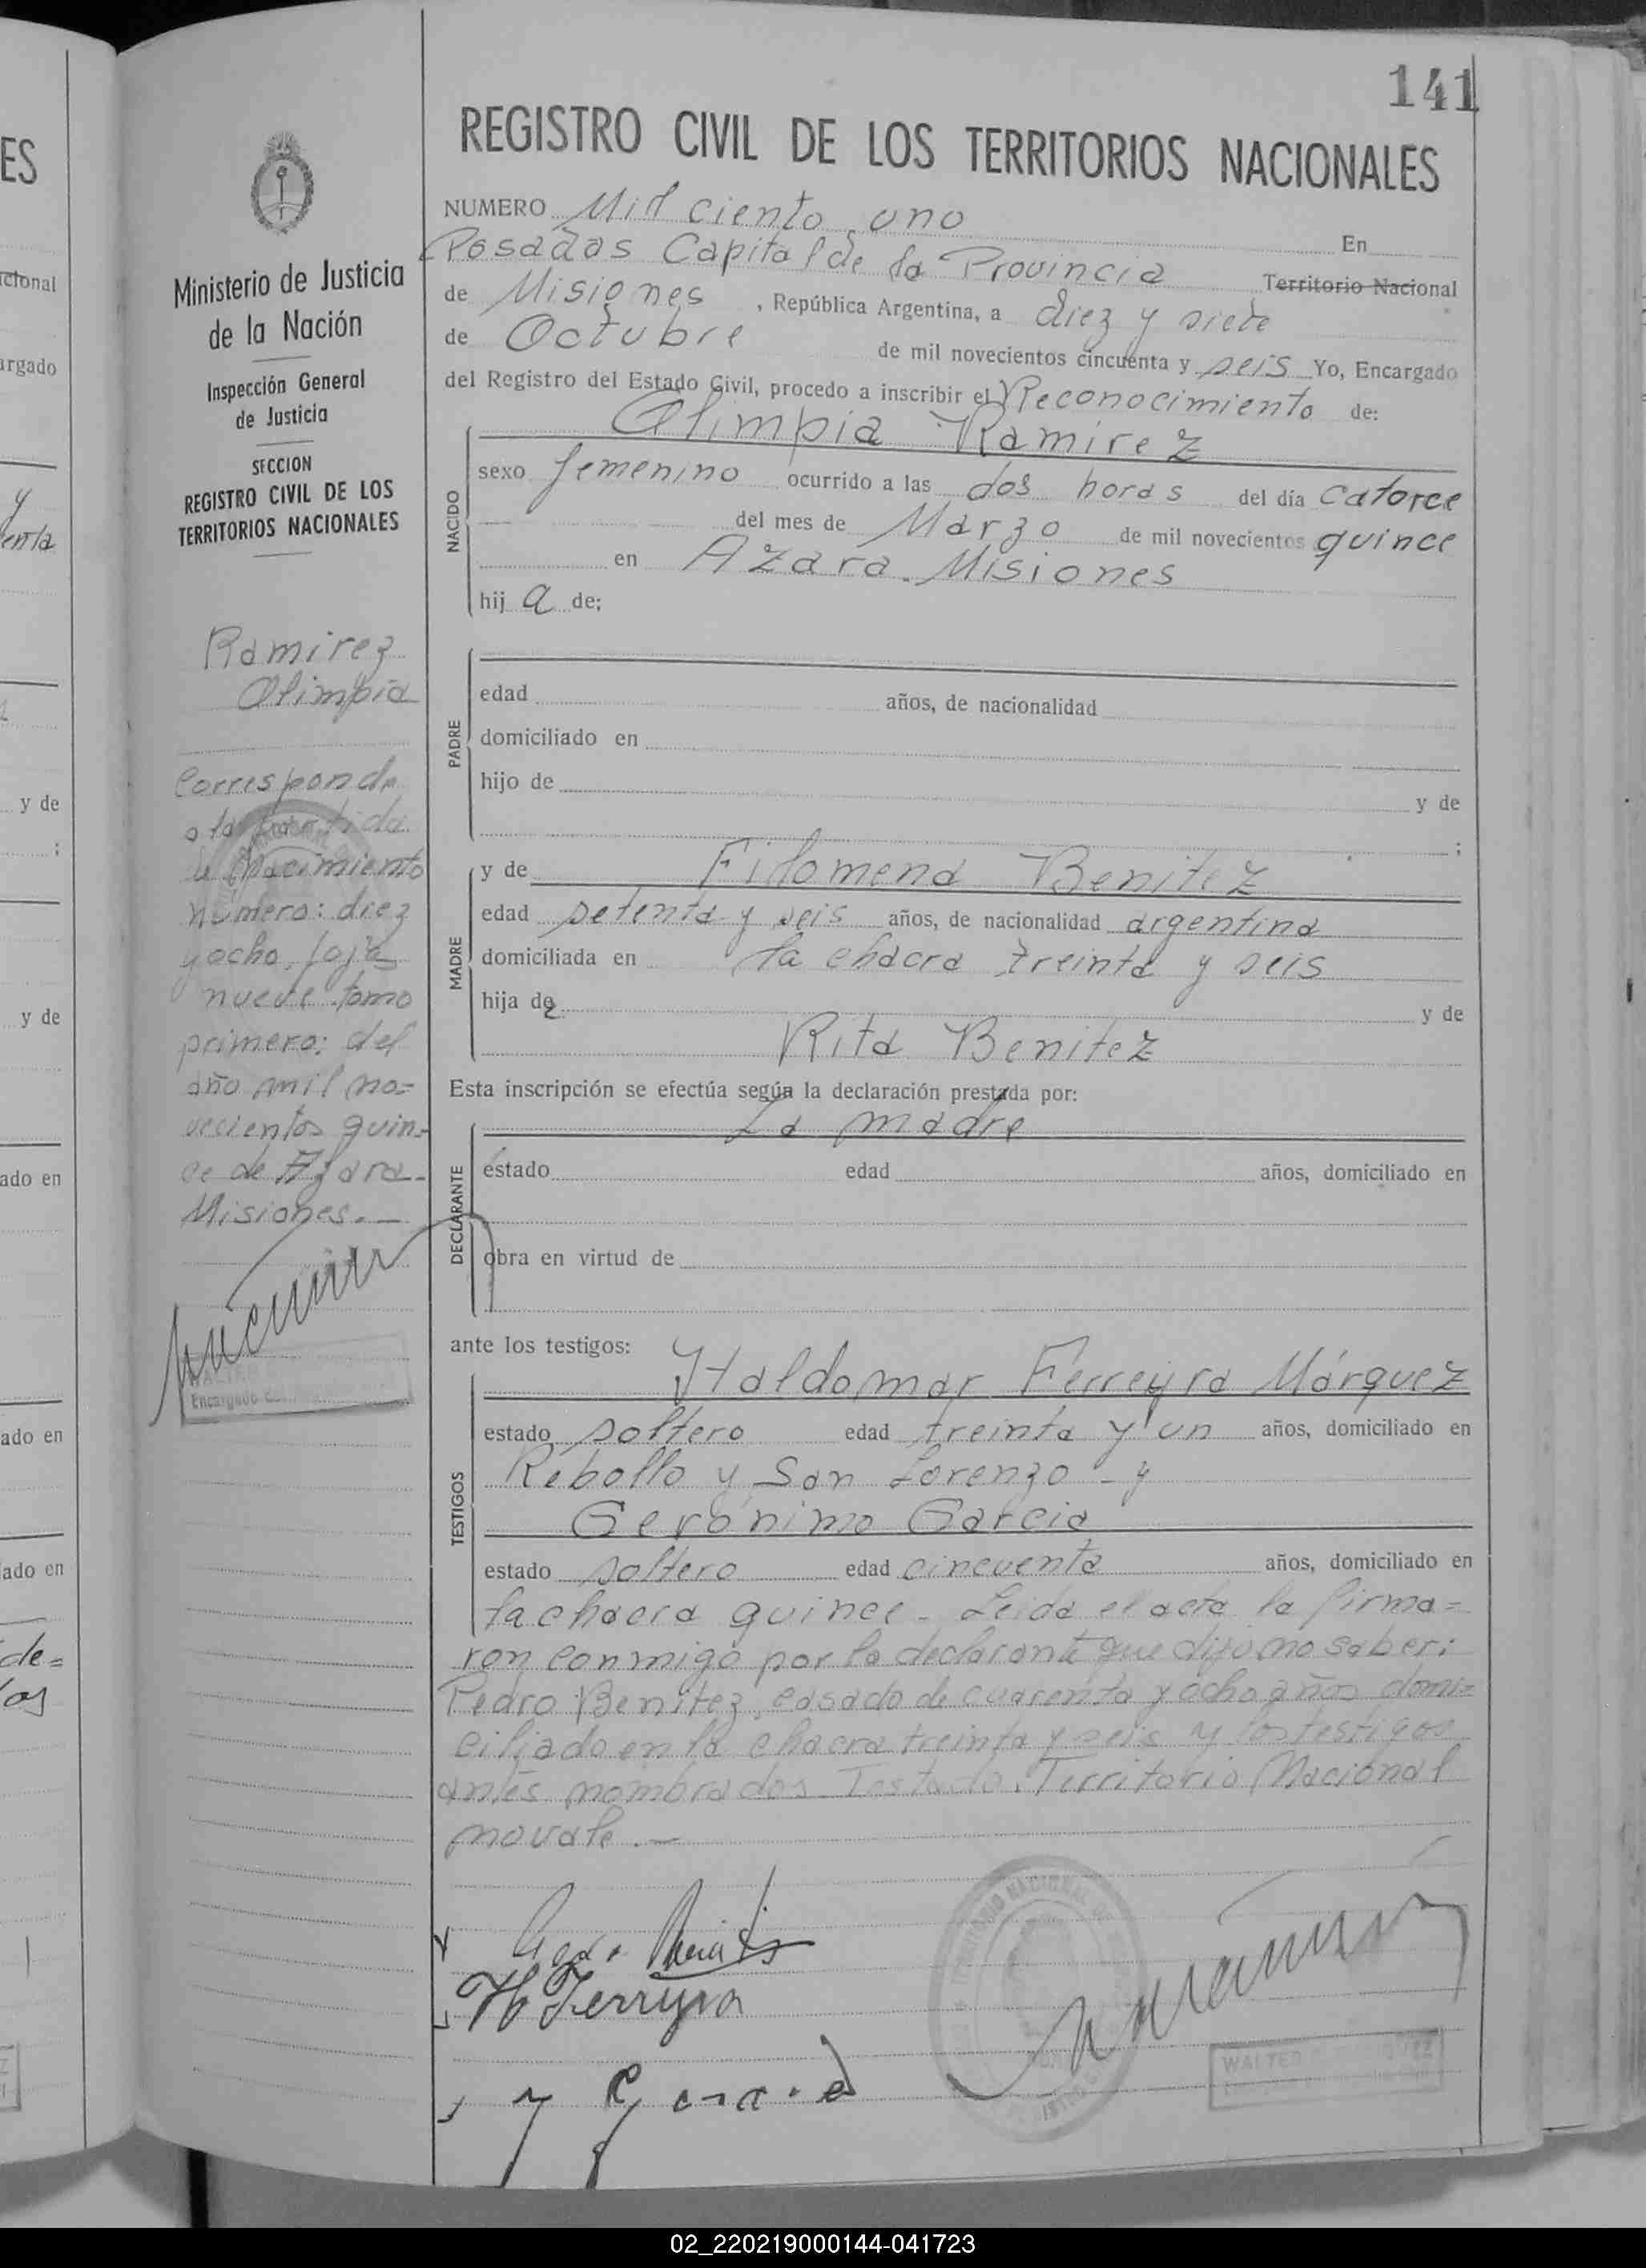 141
REGISTRO CIVIL DE LOS TERRITORIOS NACIONALES
NUMERO Mil ciento uno En
Posadas Capital de la Provincia Territorio Nacional
de Misiones, República Argentina, a diez y siete
de Octubre de mil novecientos cincuenta y seis Yo, Encargado
del Registro del Estado Civil, procedo a inscribir el Reconocimiento de:
Olimpia Ramirez
NACIDO
sexo femenino ocurrido a las dos horas del día catorce
del mes de Marzo de mil novecientos quince
en Azara. Misiones
hij a de;
PADRE
edad años, de nacionalidad
domiciliado en
hijo de y de
;
MADRE
y de Filomena Benitez
edad setenta y seis años, de nacionalidad argentina
domiciliada en la chacra treinta y seis
hija de y de
Rita Benitez
Esta inscripción se efectúa según la declaración prestada por:
La madre
DECLARANTE
estado edad años, domiciliado en
obra en virtud de
ante los testigos:
TESTIGOS
Haldomar Ferreyra Márquez
estado soltero edad treinta y un años, domiciliado en
Rebollo y San Lorenzo - y
Gerónimo Garcia
estado soltero edad cincuenta años, domiciliado en
la chacra quince - Leida el acta la firma=
ron conmigo por la declarante que dijo no saber:
Pedro Benitez, casado de cuarenta y ocho años domi=
ciliado en la chacra treinta y seis y los testigos
antes nombrados. Testado. Territorio Nacional
no vale.-
H Ferreyra
WALTER
Ministerio de Justicia
de la Nación
Inspección General
de Justicia
SECCION
REGISTRO CIVIL DE LOS
TERRITORIOS NACIONALES
Ramirez
Olimpia
Corresponde
a la partida
de Nacimiento
número: diez
y ocho, foja
nueve tomo
primero: del
año mil no=
vecientos quin=
ce de Azara-
Misiones.-
WALTER
Encargado
ES
cional
argado
y
enta
y de
;
y de
ado en
ado en
ado en
de=
los
02_220219000144-041723